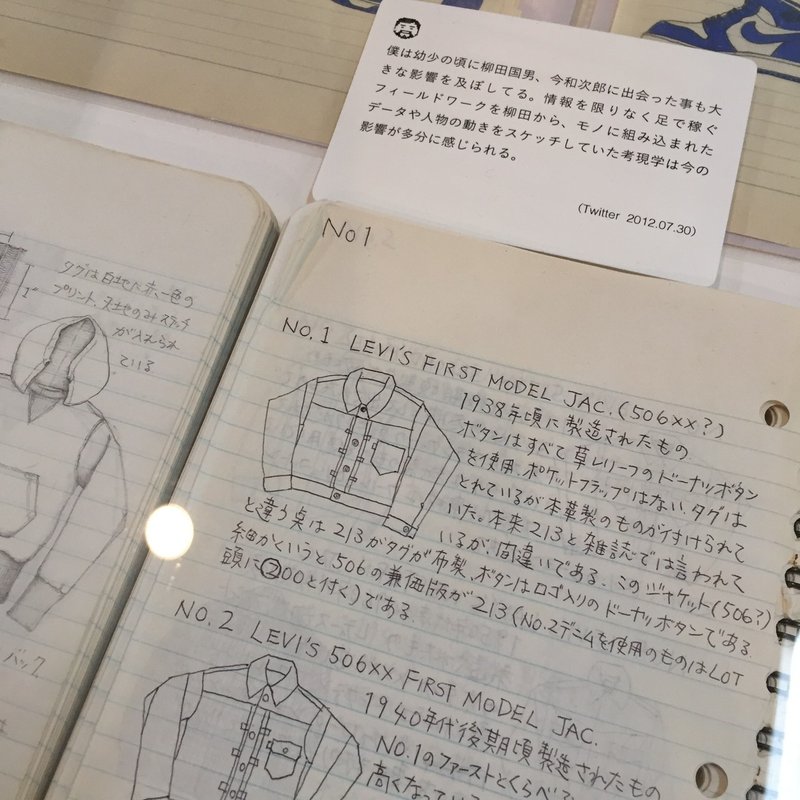 僕は幼少の頃に柳田国男、今和次郎に出会った事も大
きな影響を及ぼしてる。情報を限りなく足で稼ぐ
フィールドワークを柳田から、モノに組み込まれた
データや人物の動きをスケッチしていた考現学は今の
影響が多分に感じられる。
(Twitter 2012.07.30)
タグは白地に赤、一色の
プリント、天地のみステッチ
が入れられ
ている
1"
バック
No1
NO.1 LEVI'S FIRST MODEL JAC.(506XX?)
1938年頃に製造されたもの
ボタンはすべて草レリーフのドーナツボタン
を使用、ポケットフラップはない、タグは
とれているが本革製のものが付けられて
いた。本来213と雑誌では言われて
いるが、間違いである。このジャケット(506?)
と違う点は213がタグが布製、ボタンはロゴ入りのドーナツボタンである
細かくいうと506の兼価版が213(NO.2デニムを使用のものはLOT
頭に②00と付く)である
NO.2 LEVI'S 506XX FIRST MODEL JAC.
1940年代後期頃製造されたもの
NO.1のファーストとくらべ
高くなってい